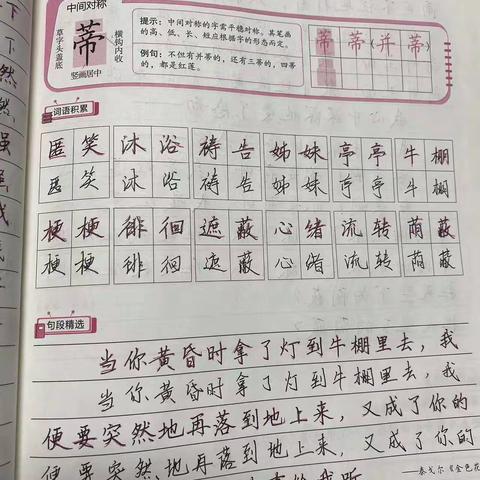 中间对称
草字头盖底
蒂
横钩内收
竖画居中
提示：中间对称的字需平稳对称。其笔画
的高、低、长、短应根据字的形态而定。
例句：不但有并蒂的，还有三蒂的，四蒂
的，都是红莲。
蒂 蒂（并 蒂）
词语积累
匿笑 沐浴 祷告 姊妹 亭亭 牛棚
匿笑 沐浴 祷告 姊妹 亭亭 牛棚
梗梗 徘徊 遮蔽 心绪 流转 荫蔽
梗梗 徘徊 遮蔽 心绪 流转 荫蔽
句段精选
当你黄昏时拿了灯到牛棚里去，我
当你黄昏时拿了灯到牛棚里去，我
便要突然地再落到地上来，又成了你的
便要突然地再落到地上来，又成了你的
——泰戈尔《金色花